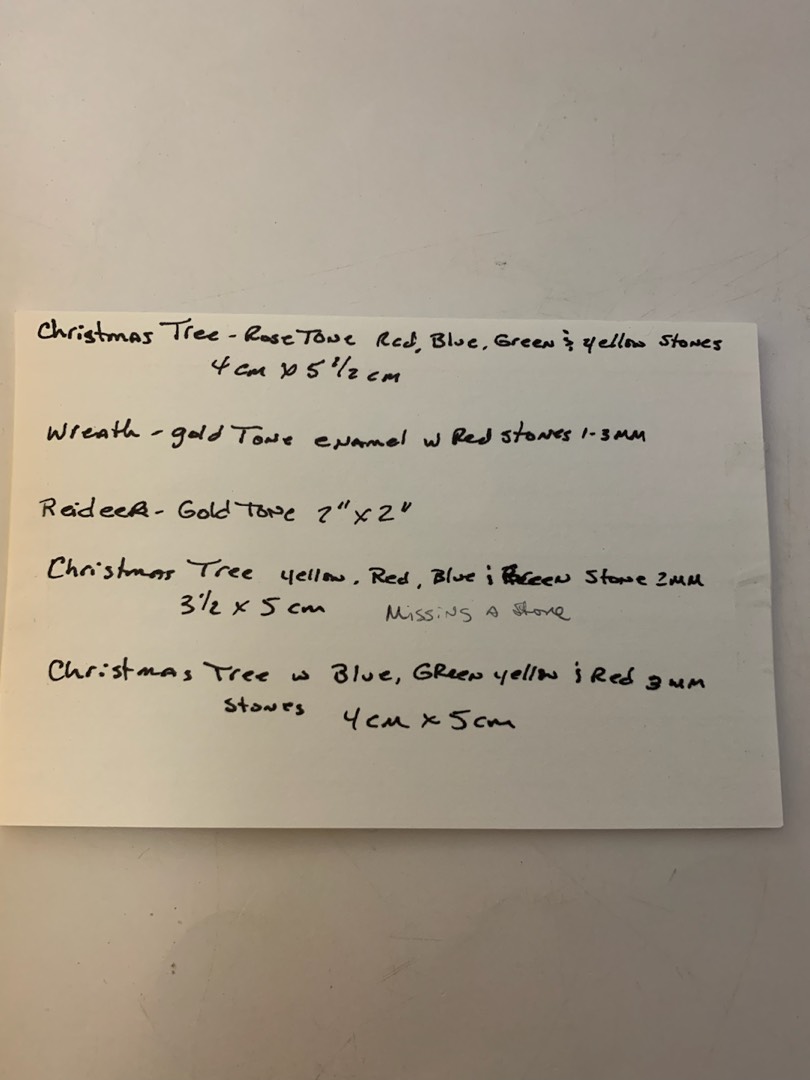 Christmas Tree - Rose Tone Red, Blue, Green & yellow Stones
4 cm x 5 1/2 cm
Wreath - gold Tone enamel w Red stones 1-3MM
Reideer - Gold Tone 2" x 2"
Christmas Tree yellow, Red, Blue & Green Stone 2MM
3 1/2 x 5 cm Missing A Stone
Christmas Tree w Blue, GReen yellow & Red 3MM
Stones 4cm x 5cm